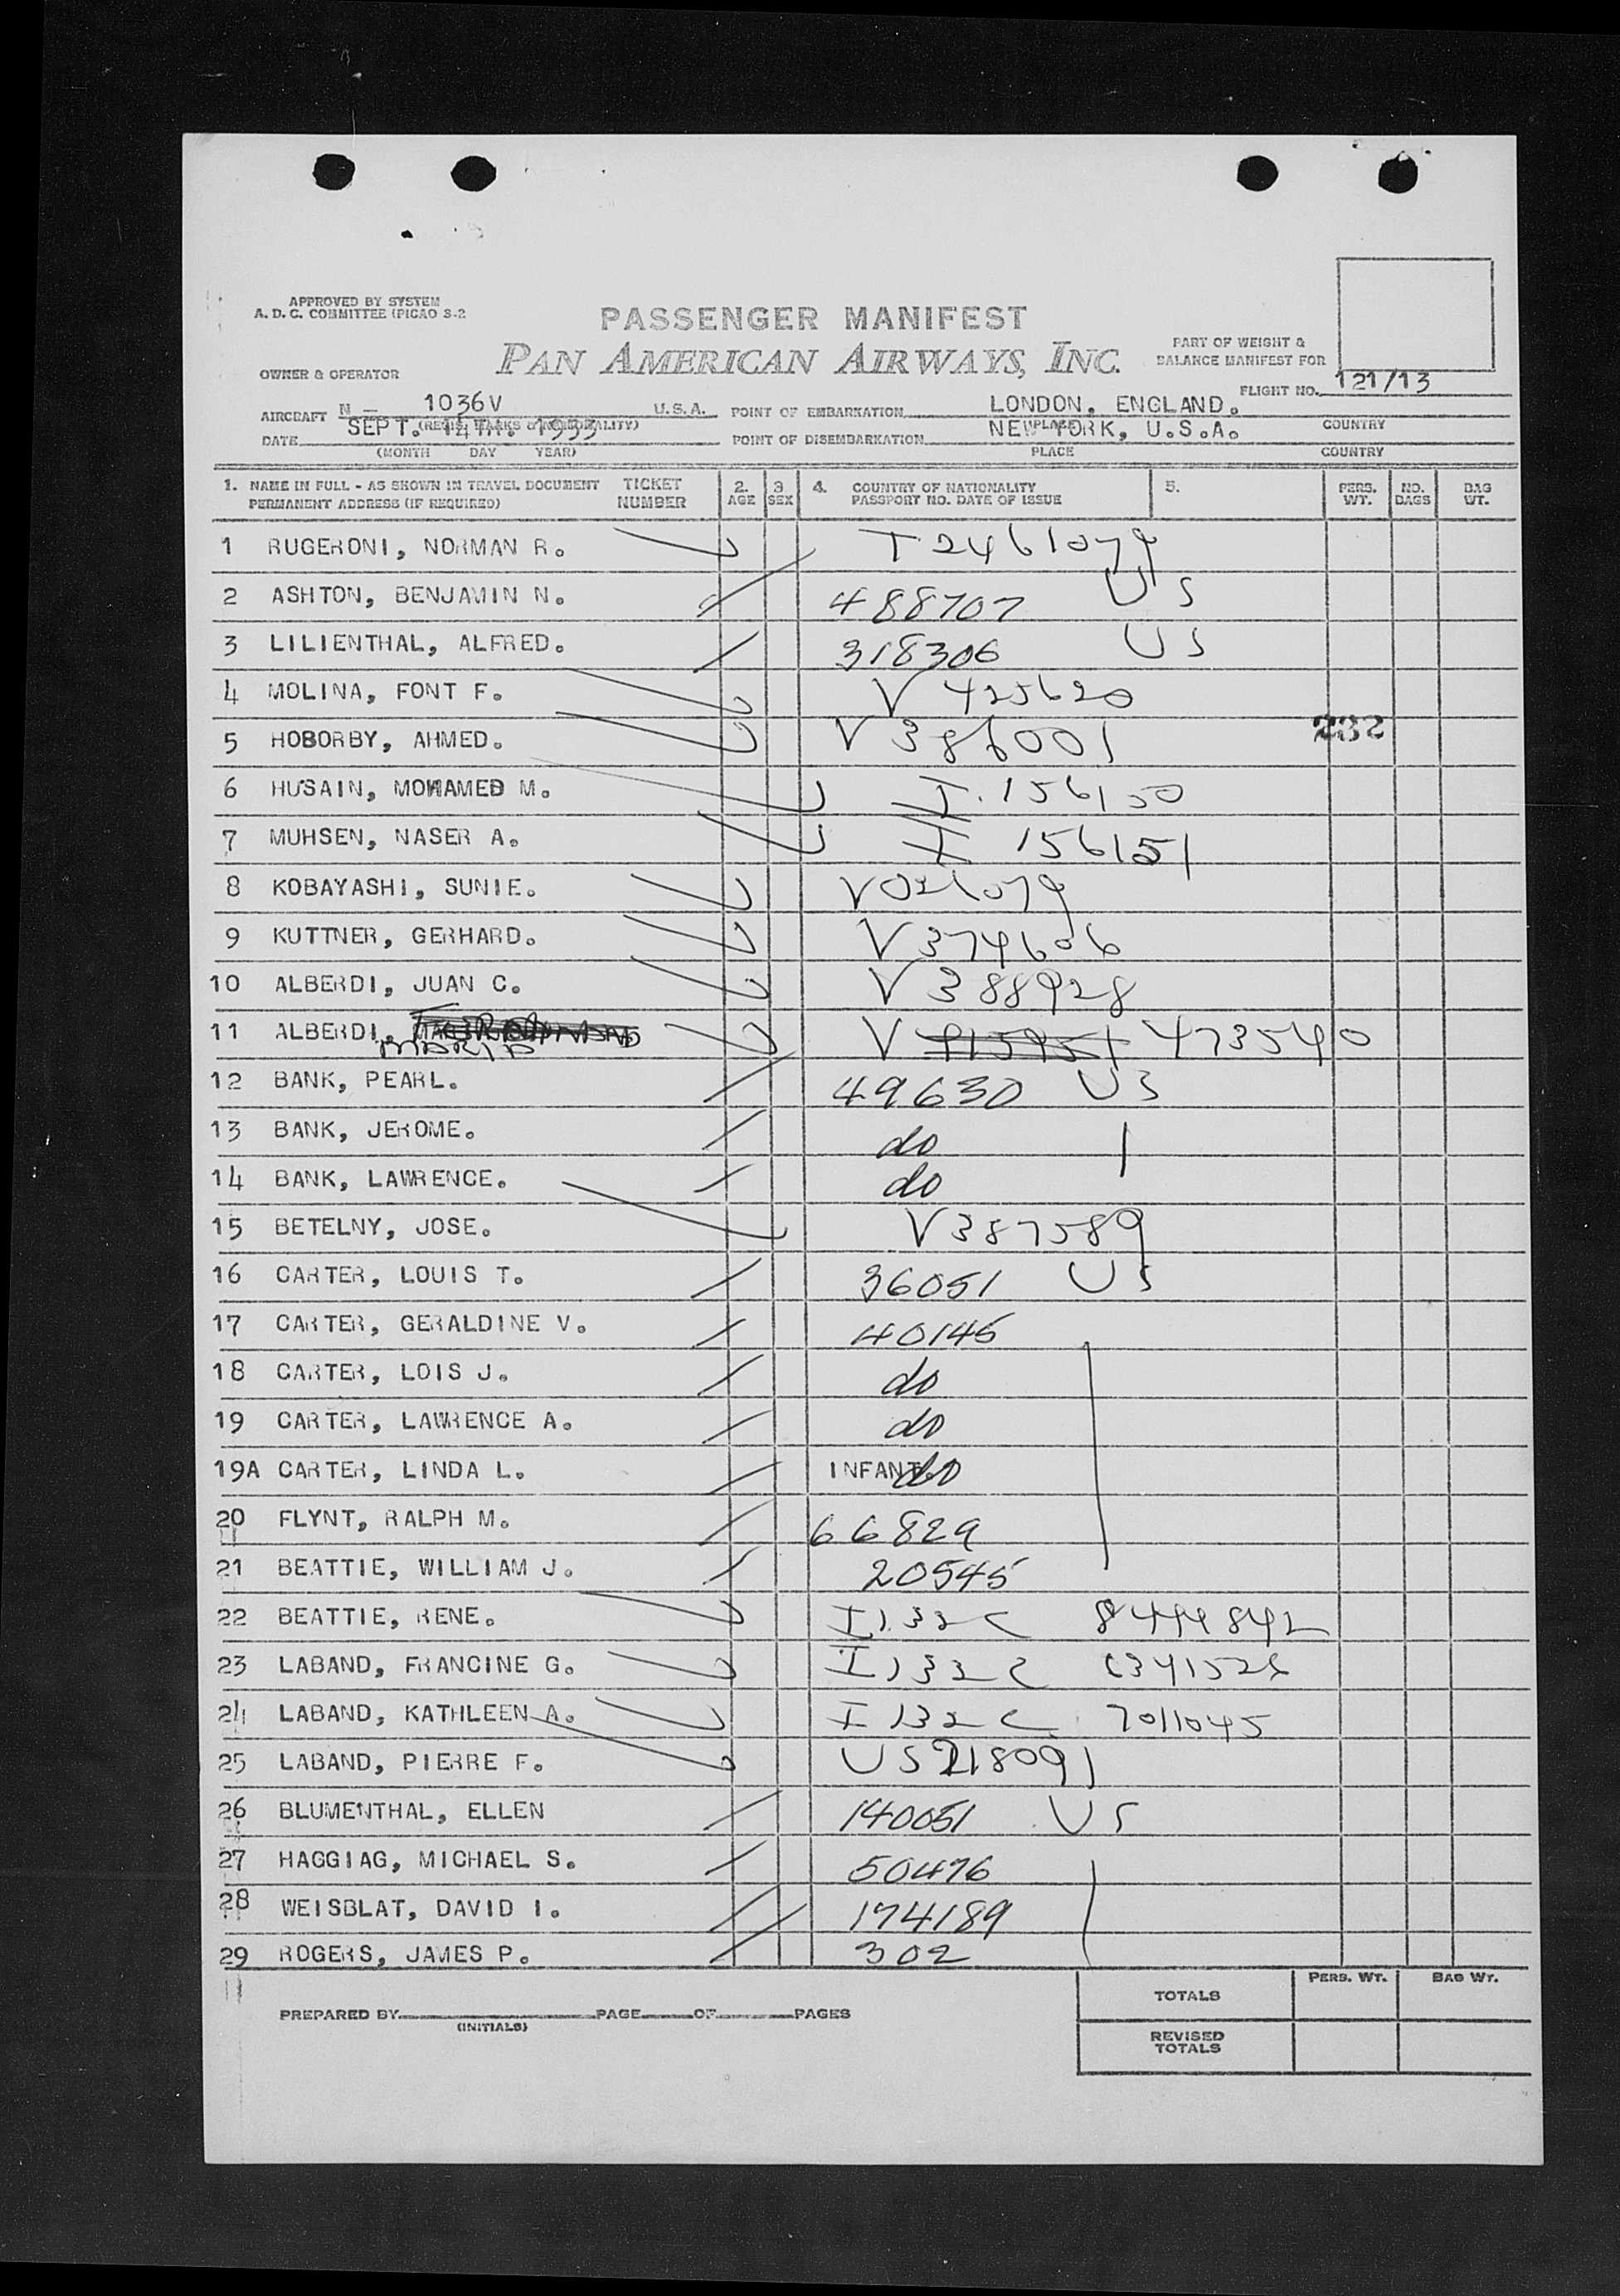 APPROVED BY SYSTEM
A. D. C. COMMITTEE (PICAO S-2
PASSENGER MANIFEST
PAN AMERICAN AIRWAYS, INC.
PART OF WEIGHT &
BALANCE MANIFEST FOR
OWNER & OPERATOR
FLIGHT NO. 121/13
AIRCRAFT N - 1036V U.S.A. POINT OF EMBARKATION LONDON, ENGLAND.
PLACE COUNTRY
DATE SEPT. 14TH.
POINT OF DISEMBARKATION NEW YORK, U.S.A.
(MONTH DAY YEAR) PLACE COUNTRY
1. NAME IN FULL - AS SHOWN IN TRAVEL DOCUMENT TICKET 2. 3 4. COUNTRY OF NATIONALITY 5. PERS. NO. BAG
PERMANENT ADDRESS (IF REQUIRED) NUMBER AGE SEX PASSPORT NO. DATE OF ISSUE WT. BAGS WT.
1 RUGERONI, NORMAN R. T2461079
2 ASHTON, BENJAMIN N. 488707 US
3 LILIENTHAL, ALFRED. 318306 US
4 MOLINA, FONT F. V 425620
5 HOBORBY, AHMED. V 386001 232
6 HUSAIN, MOHAMED M. I.156150
7 MUHSEN, NASER A. I 156151
8 KOBAYASHI, SUNIE. V021079
9 KUTTNER, GERHARD. V374606
10 ALBERDI, JUAN C. V 388928
11 ALBERDI, MARIA V 473540
12 BANK, PEARL. 49630 US
13 BANK, JEROME. do
14 BANK, LAWRENCE. do
15 BETELNY, JOSE. V387589
16 CARTER, LOUIS T. 36051 US
17 CARTER, GERALDINE V. 40145
18 CARTER, LOIS J. do
19 CARTER, LAWRENCE A. do
19A CARTER, LINDA L. INFANT. do
20 FLYNT, RALPH M. 66829
21 BEATTIE, WILLIAM J. 20545
22 BEATTIE, RENE. I132C
23 LABAND, FRANCINE G. I132C
24 LABAND, KATHLEEN A. I132C 7011045
25 LABAND, PIERRE F. US218091
26 BLUMENTHAL, ELLEN 140051 US
27 HAGGIAG, MICHAEL S. 50476
28 WEISBLAT, DAVID I. 174189
29 ROGERS, JAMES P. 302
PERS. WT. BAG WT.
TOTALS
PREPARED BY PAGE OF PAGES
(INITIALS)
REVISED
TOTALS